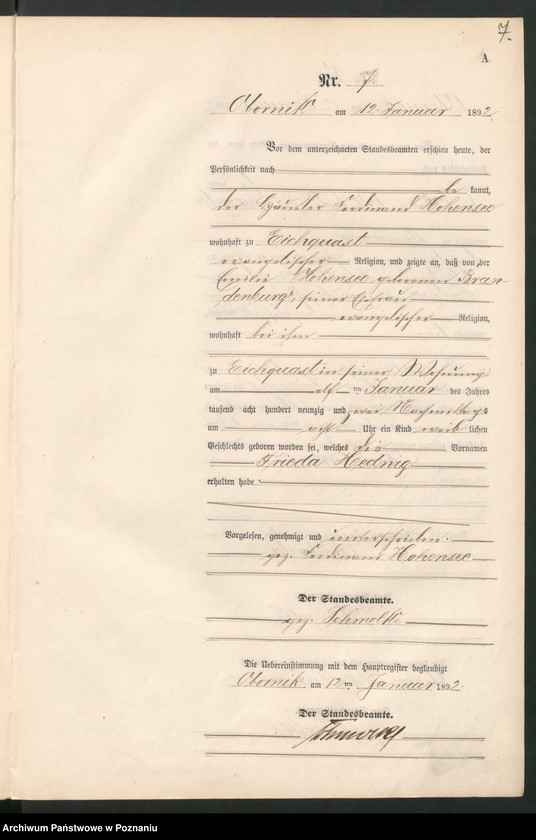 7.
A
Nr. 7.
Obornik am 12. Januar 1892.
Vor dem unterzeichneten Standesbeamten erschien heute, der
Persönlichkeit nach
be kannt,
der Häusler Ferdinand Hohensee
wohnhaft zu Eichquast
evangelischer Religion, und zeigte an, daß von der
Emilie Hohensee geborenen Bran-
denburg, seiner Ehefrau
evangelischer Religion,
wohnhaft bei ihm
zu Eichquast in seiner Wohnung
am elf ten Januar des Jahres
tausend acht hundert neunzig und zwei Nachmittags
um acht Uhr ein Kind weib lichen
Geschlechts geboren worden sei, welches die Vornamen
Frieda Hedwig
erhalten habe.
Vorgelesen, genehmigt und unterschrieben.
gez. Ferdinand Hohensee
Der Standesbeamte.
gez. Schmolke
Die Uebereinstimmung mit dem Hauptregister beglaubigt
Obornik am 12ten Januar 1892.
Der Standesbeamte.
Archiwum Państwowe w Poznaniu